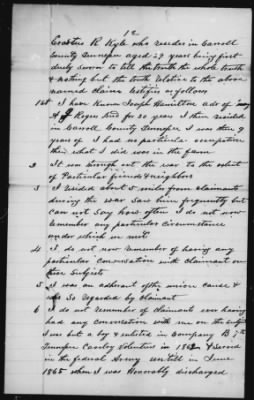 12
Erastus R Kyle who resides in Carroll
County Tennessee aged 29 years being first
duly sworn to tell the truth the whole truth
& nothing but the truth relative to the above
named claims testifies as follows
1st I have known Joseph Hamilton adr of
A Rogers for 20 years I then resided
in Carroll County Tennessee I was then 9
years of I had no particular occupation
then what I did was on the farm
2 It was through out the war to the extent
of Particular friends & neighbors
3 I resided about 5 miles from claimants
during the war saw him frequently but
can not say how often I do not now
remember any particular circumstance
under which we met
4 I do not now remember of having any
particular conversation with claimant on
these Subjects
5 I was an adherent of the union cause &
was so regarded by claimant
6 I do not remember of claimants ever having
had any conversation with me on the subject
I was but a boy & enlisted in Company B 7th
Tennessee Cavalry Volunteers in 1862 & served
in the federal Army until in June
1865 when I was Honorably discharged